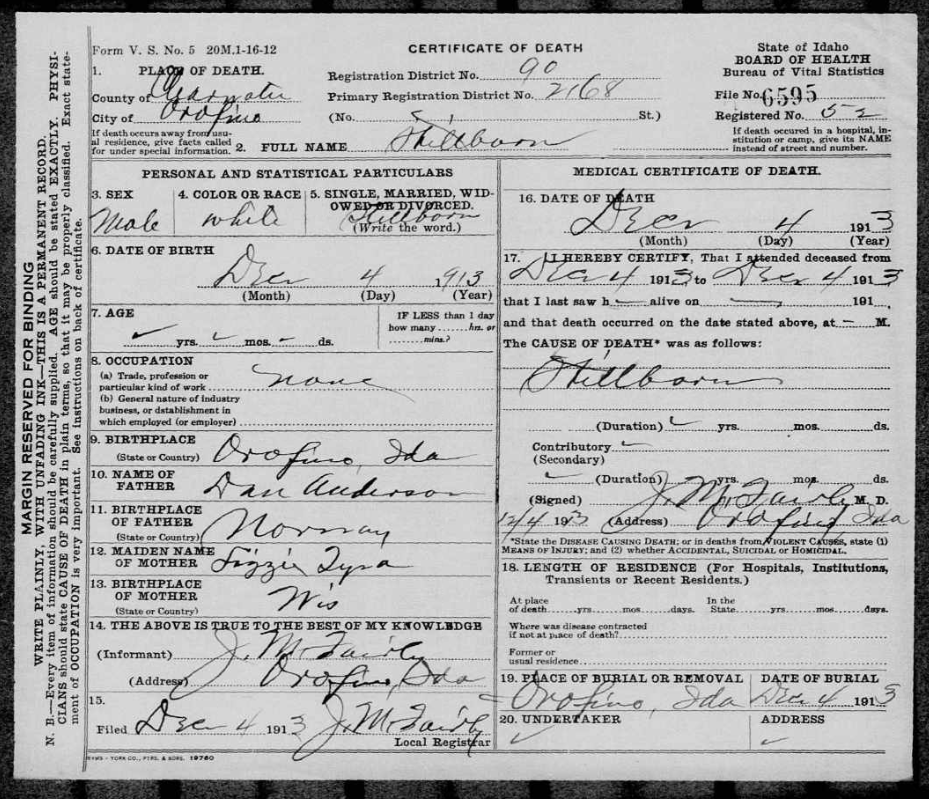 MARGIN RESERVED FOR BINDING
WRITE PLAINLY, WITH UNFADING INK—THIS IS A PERMANENT RECORD.
N. B.—Every item of information should be carefully supplied. AGE should be stated EXACTLY. PHYSI-
CIANS should state CAUSE OF DEATH in plain terms, so that it may be properly classified. Exact state-
ment of OCCUPATION is very important. See instructions on back of certificate.
Form V. S. No. 5 20M.1-16-12
CERTIFICATE OF DEATH
State of Idaho
BOARD OF HEALTH
Bureau of Vital Statistics
1. PLACE OF DEATH.
County of Clearwater
City of Orofino
If death occurs away from usu-
al residence, give facts called
for under special information.
Registration District No. 90
Primary Registration District No. 2168
(No. St.)
File No. 6595
Registered No. 52
If death occurred in a hospital, in-
stitution or camp, give its NAME
instead of street and number.
2. FULL NAME Stillborn
PERSONAL AND STATISTICAL PARTICULARS
3. SEX
Male
4. COLOR OR RACE
White
5. SINGLE, MARRIED, WID-
OWED OR DIVORCED.
Stillborn
(Write the word.)
6. DATE OF BIRTH
Dec 4 1913
(Month) (Day) (Year)
7. AGE
yrs. mos. ds.
IF LESS than 1 day
how many hrs. or
mins.?
8. OCCUPATION
(a) Trade, profession or
particular kind of work none
(b) General nature of industry
business, or dstablishment in
which employed (or employer)
9. BIRTHPLACE
(State or Country) Orofino, Ida
10. NAME OF
FATHER Dan Anderson
11. BIRTHPLACE
OF FATHER
(State or Country) Norway
12. MAIDEN NAME
OF MOTHER Lizzie Tyra
13. BIRTHPLACE
OF MOTHER
(State or Country) Wis
14. THE ABOVE IS TRUE TO THE BEST OF MY KNOWLEDGE
(Informant) J. M. Fairly
(Address) Orofino, Ida
15.
Filed Dec 4 1913 J. M. Fairly
Local Registrar
SYMS - YORK CO., PTRS. & BDRS. 19760
MEDICAL CERTIFICATE OF DEATH.
16. DATE OF DEATH
Dec 4 1913
(Month) (Day) (Year)
17. I HEREBY CERTIFY, That I attended deceased from
Dec 4 1913 to Dec 4 1913
that I last saw h— alive on — 191
and that death occurred on the date stated above, at — M.
The CAUSE OF DEATH* was as follows:
Stillborn
(Duration) yrs. mos. ds.
Contributory
(Secondary)
(Duration) yrs. mos. ds.
(Signed) J. M. Fairly M. D.
12/4 1913 (Address) Orofino, Ida
*State the DISEASE CAUSING DEATH; or in deaths from VIOLENT CAUSES, state (1)
MEANS OF INJURY; and (2) whether ACCIDENTAL, SUICIDAL or HOMICIDAL.
18. LENGTH OF RESIDENCE (For Hospitals, Institutions,
Transients or Recent Residents.)
At place In the
of death yrs. mos days. State yrs. mos. days.
Where was disease contracted
if not at place of death?
Former or
usual residence
19. PLACE OF BURIAL OR REMOVAL
Orofino, Ida
DATE OF BURIAL
Dec 4 1913
20. UNDERTAKER
ADDRESS